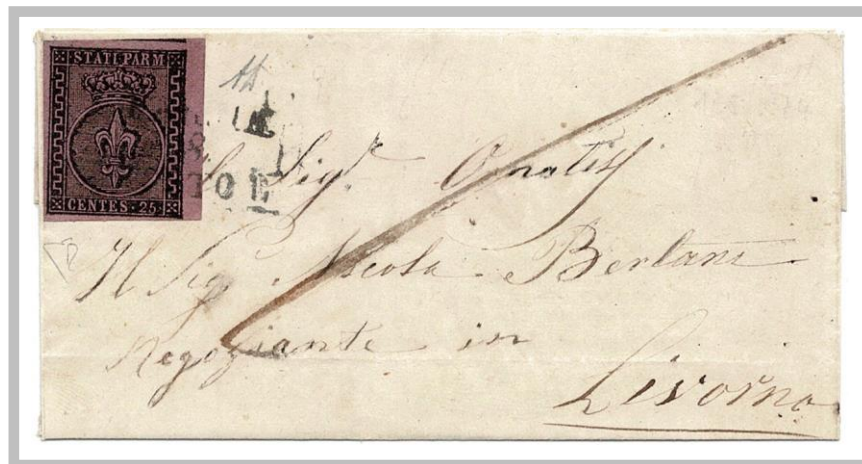 STATI PARM
CENTES. 25
Sig.r Ornatiss
Il Sig. Nicola Bertani
Negoziante in
Livorno